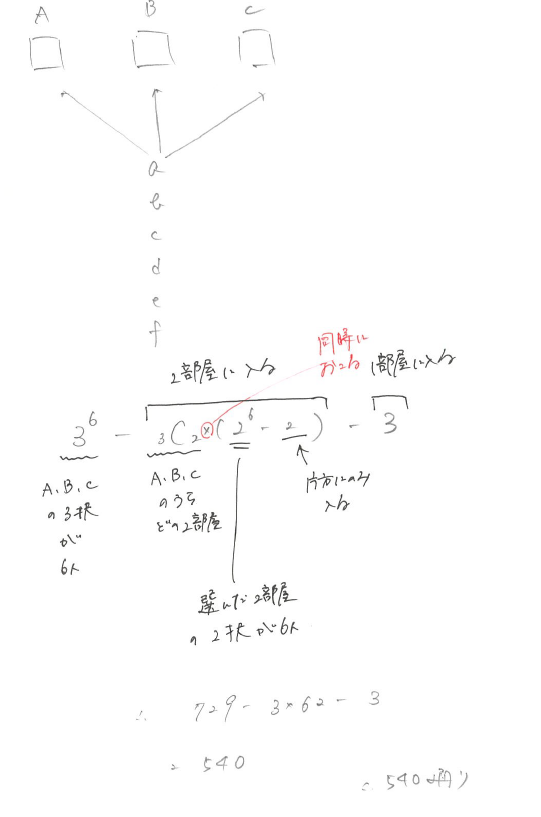 A B C
a
b
c
d
e
f
同時に
おこる
2部屋に入る
1部屋に入る
3⁶ - ₃C₂×(2⁶ - 2) - 3
A、B、C
の3択
が
6人
A、B、C
のうち
どの2部屋
片方にのみ
入る
選んだ2部屋
の2択が6人
∴ 729 - 3×62 - 3
= 540
∴ 540通り